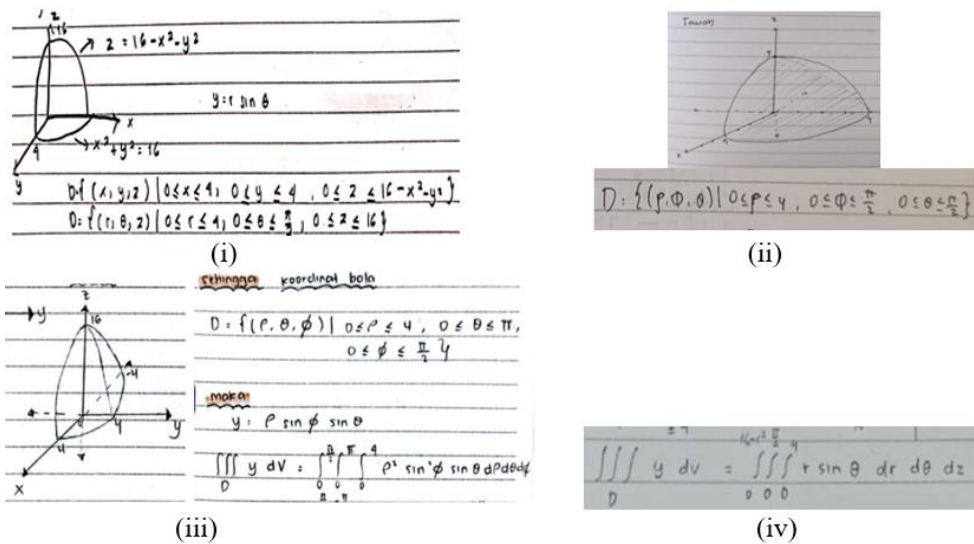 z
16
z = 16-x²-y²
y = r sin θ
x
x²+y²=16
4
y
D={(x,y,z) | 0≤x≤4, 0≤y≤4, 0≤z≤16-x²-y²}
D={(r,θ,z) | 0≤r≤4, 0≤θ≤π/2, 0≤z≤16}
(i)
z
4
4
4
x
D: {(ρ,Φ,θ) | 0≤ρ≤4, 0≤Φ≤π/2, 0≤θ≤π/2}
(ii)
y
z
16
-4
4
y
4
x
sehingga koordinat bola
D = {(ρ,θ,ϕ) | 0≤ρ≤4, 0≤θ≤π,
0≤ϕ≤π/2}
maka
y = ρ sin ϕ sin θ
∭_D y dV = ∫_0^{π/2} ∫_0^π ∫_0^4 ρ² sin²ϕ sin θ dρ dθ dϕ
(iii)
∭_D y dv = ∫_0^{16-r²} ∫_0^{π/2} ∫_0^4 r sin θ dr dθ dz
(iv)